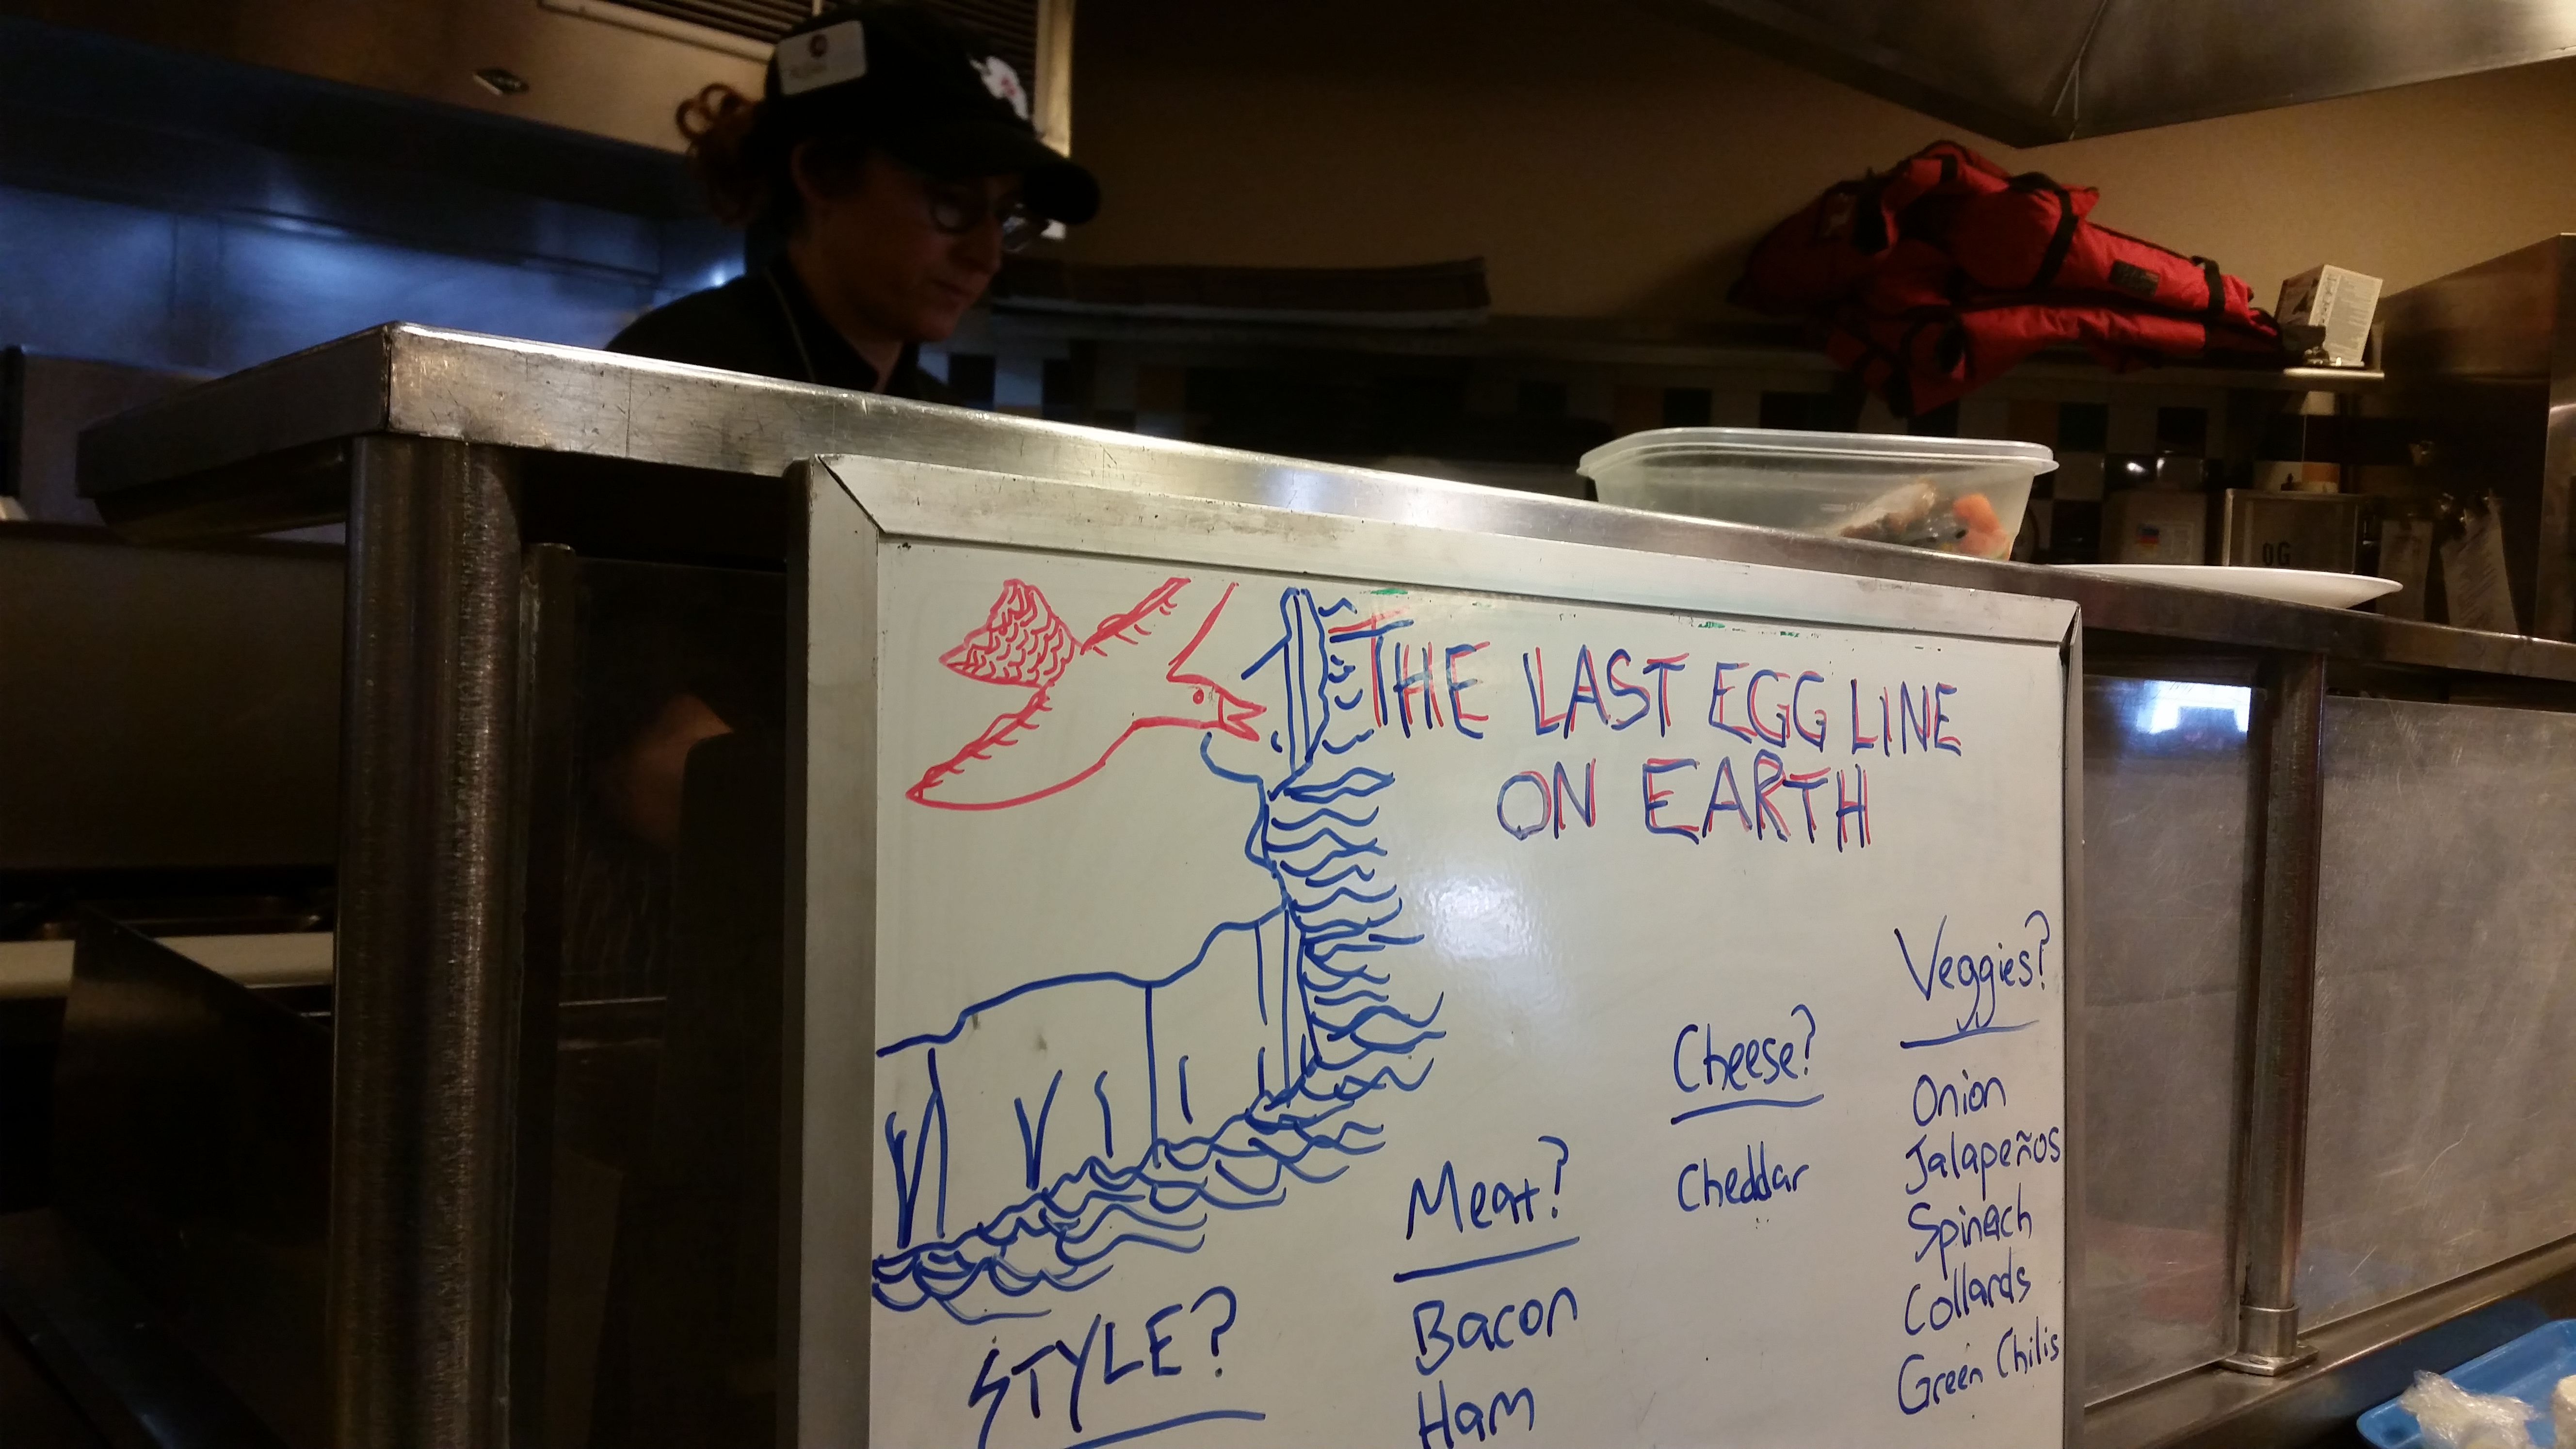 THE LAST EGG LINE
ON EARTH
STYLE?
Meat?
Bacon
Ham
Cheese?
Cheddar
Veggies?
Onion
Jalapeños
Spinach
Collards
Green Chilis
OG